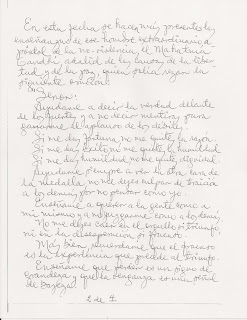 En esta fecha se hacen más presentes las
enseñanzas de ese hombre extraordinario a-
póstol de la no-violencia, el Mahatma
Gandhi adalid de las luces de la liber-
tad y de la paz, quien solía rezar la
siguiente oración:
Señor:
Ayúdame a decir la verdad delante
de los fuertes y a no decir mentiras para
ganarme el aplauso de los débiles.
Si me das fortuna, no me quites la razón.
Si me das éxito, no me quites la humildad
Si me das humildad, no me quites dignidad.
Ayúdame siempre a ver la otra cara de
la medalla, no me dejes culpar de traición
a los demás por no pensar como yo.
Enséñame a querer a la gente como a
mi mismo y a no juzgarme como a los demás,
No me dejes caer en el orgullo si triunfo,
ni en la desesperación si fracaso.
Más bien, recuérdame que el fracaso
es la experiencia que precede al triunfo.
Enséñame que perdonar es un signo de
grandeza y que la venganza es una señal
de bajeza.